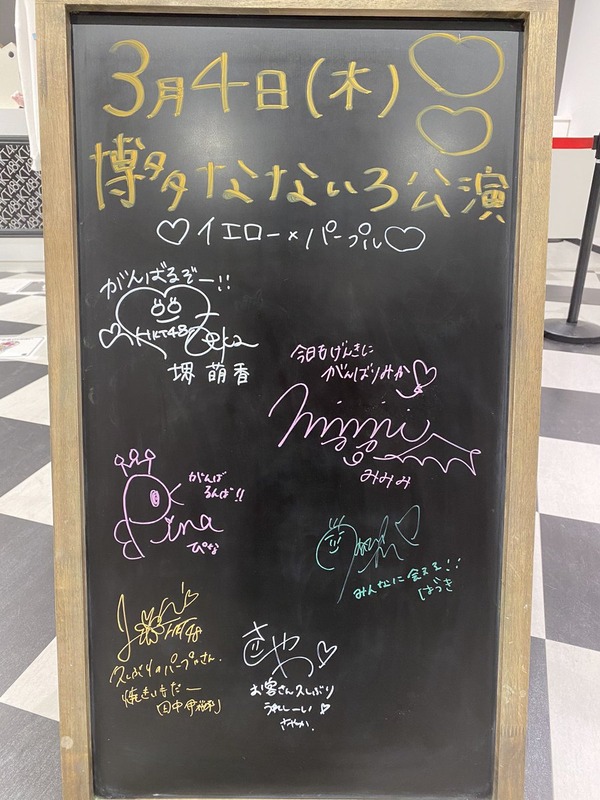 3月4日(木)
博多なないろ公演
イエロー×パープル
がんばるぞー!!
HKT48
堺 萌香
今日もげんきに
がんばりみか
mimi
みみみ
がんば
るんば!!
Pina
ぴな
みんなに会える!!
はづき
HKT48
久しぶりのパープルさん.
田中伊桜莉
さや
お客さん久しぶり
うれしーい
さやか.